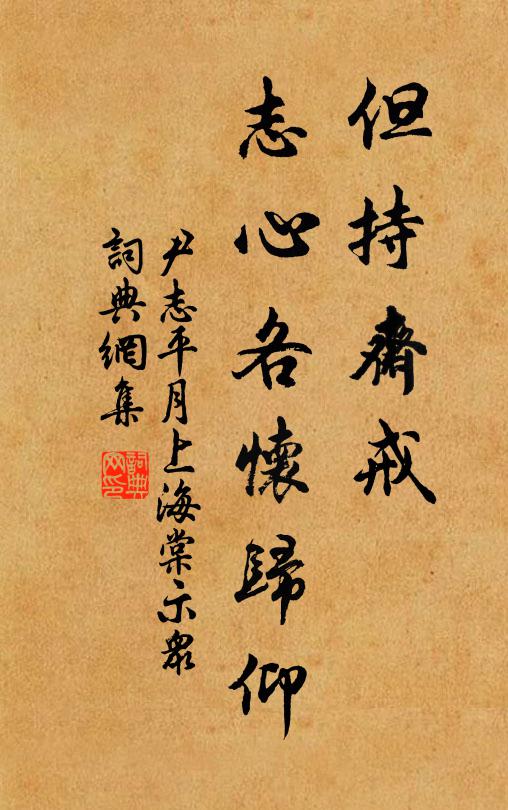 但持齋戒
志心各懷歸仰
尹志平月上海棠示衆
詞典網集
詞典網印